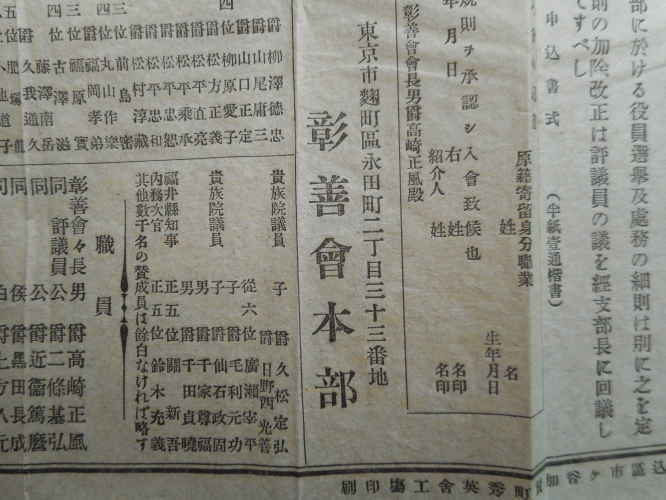 部に於ける役員選擧及處務の細則は別に之を定
則の加除改正は評議員の議を經支部長に回議し
てすべし
申込書式
(半紙壹通楷書)
原籍寄留身分職業
姓 名
生年月日
規則ヲ承認シ入會致候也
年月日 右 姓 名印
紹介人 姓 名印
彰善會會長男爵高崎正風殿
東京市麴町區永田町二丁目三十三番地
彰善會本部
爵 柳澤德忠
爵 山尾庸三
爵 山口正定
四位 柳原愛子
爵 松方正義
爵 松平直亮
爵 松平乘承
爵 松平忠恕
爵 松平忠和
爵 松村淳藏
三位 前島密
四位 福岡孝弟
四位 福原實
三位 古澤滋
貴族院議員 子爵 久松定弘
爵 日野西光善
從六位 廣瀨宰平
子爵 毛利元功
貴族院議員 子爵 仙石政固
男爵 千家尊福
男爵 千田貞曉
福井縣知事 正五位 關新吾
內務次官 正五位 鈴木充義
其他數千名の賛成員は餘白なければ略す
職員
彰善會々長 男爵 高崎正風
同 評議員 公爵 二條基弘
同 公爵 近衞篤麿
同 侯爵 黑田長成
同 伯爵 土方久元
町秀英舍工場印刷